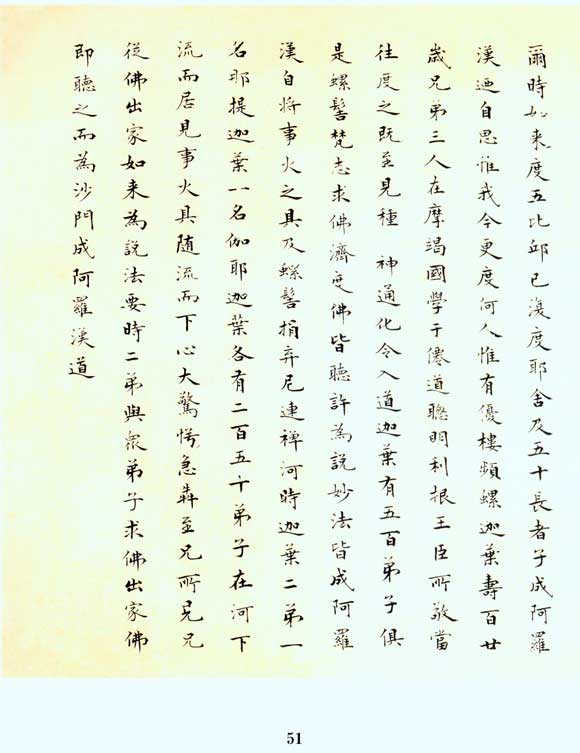 爾時如来度五比邱已復度耶舍及五十長者子成阿羅
漢廼自思惟我今更度何人惟有優樓頻螺迦葉壽百廿
歲兄弟三人在摩竭國學于僊道聰明利根王臣所敬當
往度之既至見種 神通化令入道迦葉有五百弟子俱
是螺髻梵志求佛濟度佛皆聽許為説妙法皆成阿羅
漢自将事火之具及螺髻捐弃尼連禅河時迦葉二弟一
名耶提迦葉一名伽耶迦葉各有二百五十弟子在河下
流而居見事火具随流而下心大驚愕急犇至兄所見兄
從佛出家如来為説法要時二弟與衆弟子求佛出家佛
即聽之而為沙門成阿羅漢道
51